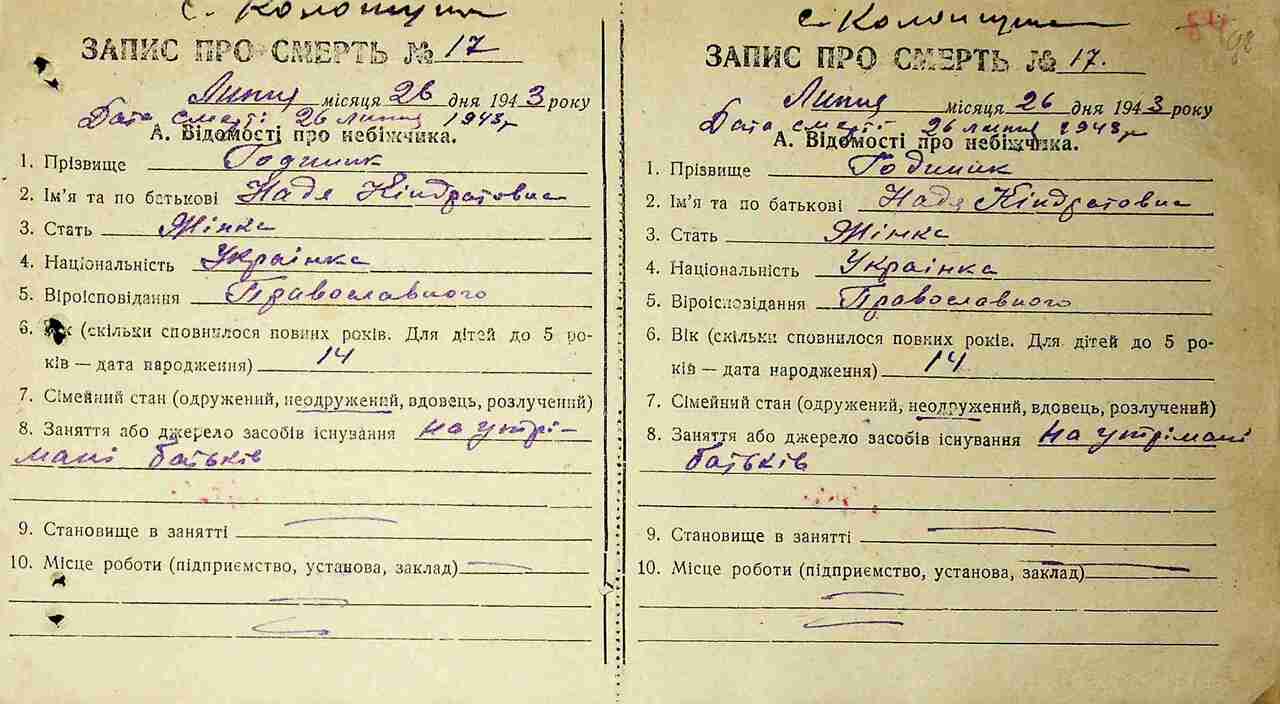 ЗАПИС ПРО СМЕРТЬ № 17
Липня місяця 26 дня 1943 року
Дата смерті: 26 липня 1943 р
А. Відомості про небіжчика.
1. Прізвище Годиник
2. Ім'я та по батькові Надя Кіндратовна
3. Стать Жінка
4. Національність Українка
5. Віроісповідання Православного
6. (скільки сповнилося повних років. Для дітей до 5 ро-
ків — дата народження) 14
7. Сімейний стан (одружений, неодружений, вдовець, розлучений)
8. Заняття або джерело засобів існування на утрі-
мані батьків
9. Становище в занятті
10. Місце роботи (підприємство, установа, заклад)
84
98
ЗАПИС ПРО СМЕРТЬ № 17.
Липня місяця 26 дня 1943 року
Дата смерті: 26 липня 1943 р
А. Відомості про небіжчика.
1. Прізвище Годиник
2. Ім'я та по батькові Надя Кіндратовна
3. Стать Жінка
4. Національність Українка
5. Віроісповідання Православного
6. Вік (скільки сповнилося повних років. Для дітей до 5 ро-
ків — дата народження) 14
7. Сімейний стан (одружений, неодружений, вдовець, розлучений)
8. Заняття або джерело засобів існування на утрімані
батьків
9. Становище в занятті
10. Місце роботи (підприємство, установа, заклад)